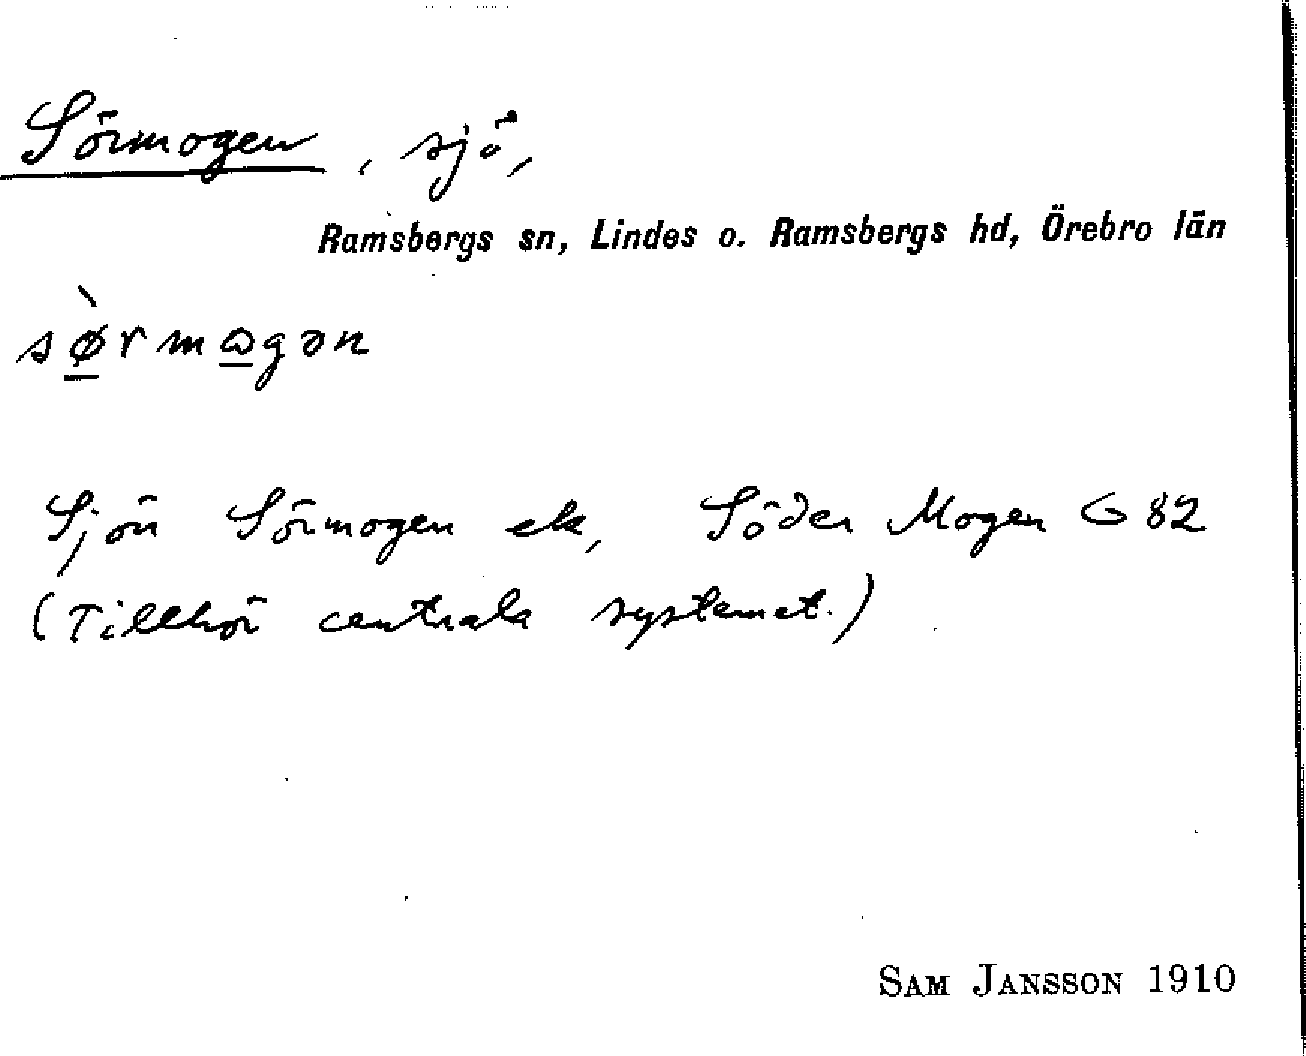 Sörmogen, sjö,
Ramsbergs sn, Lindes o. Ramsbergs hd, Örebro län
sø̠̀rmꞷ̠gən
Sjön Sörmogen ek, Söder Mogen G 82
(Tillhör centrala systemet.)
SAM JANSSON 1910